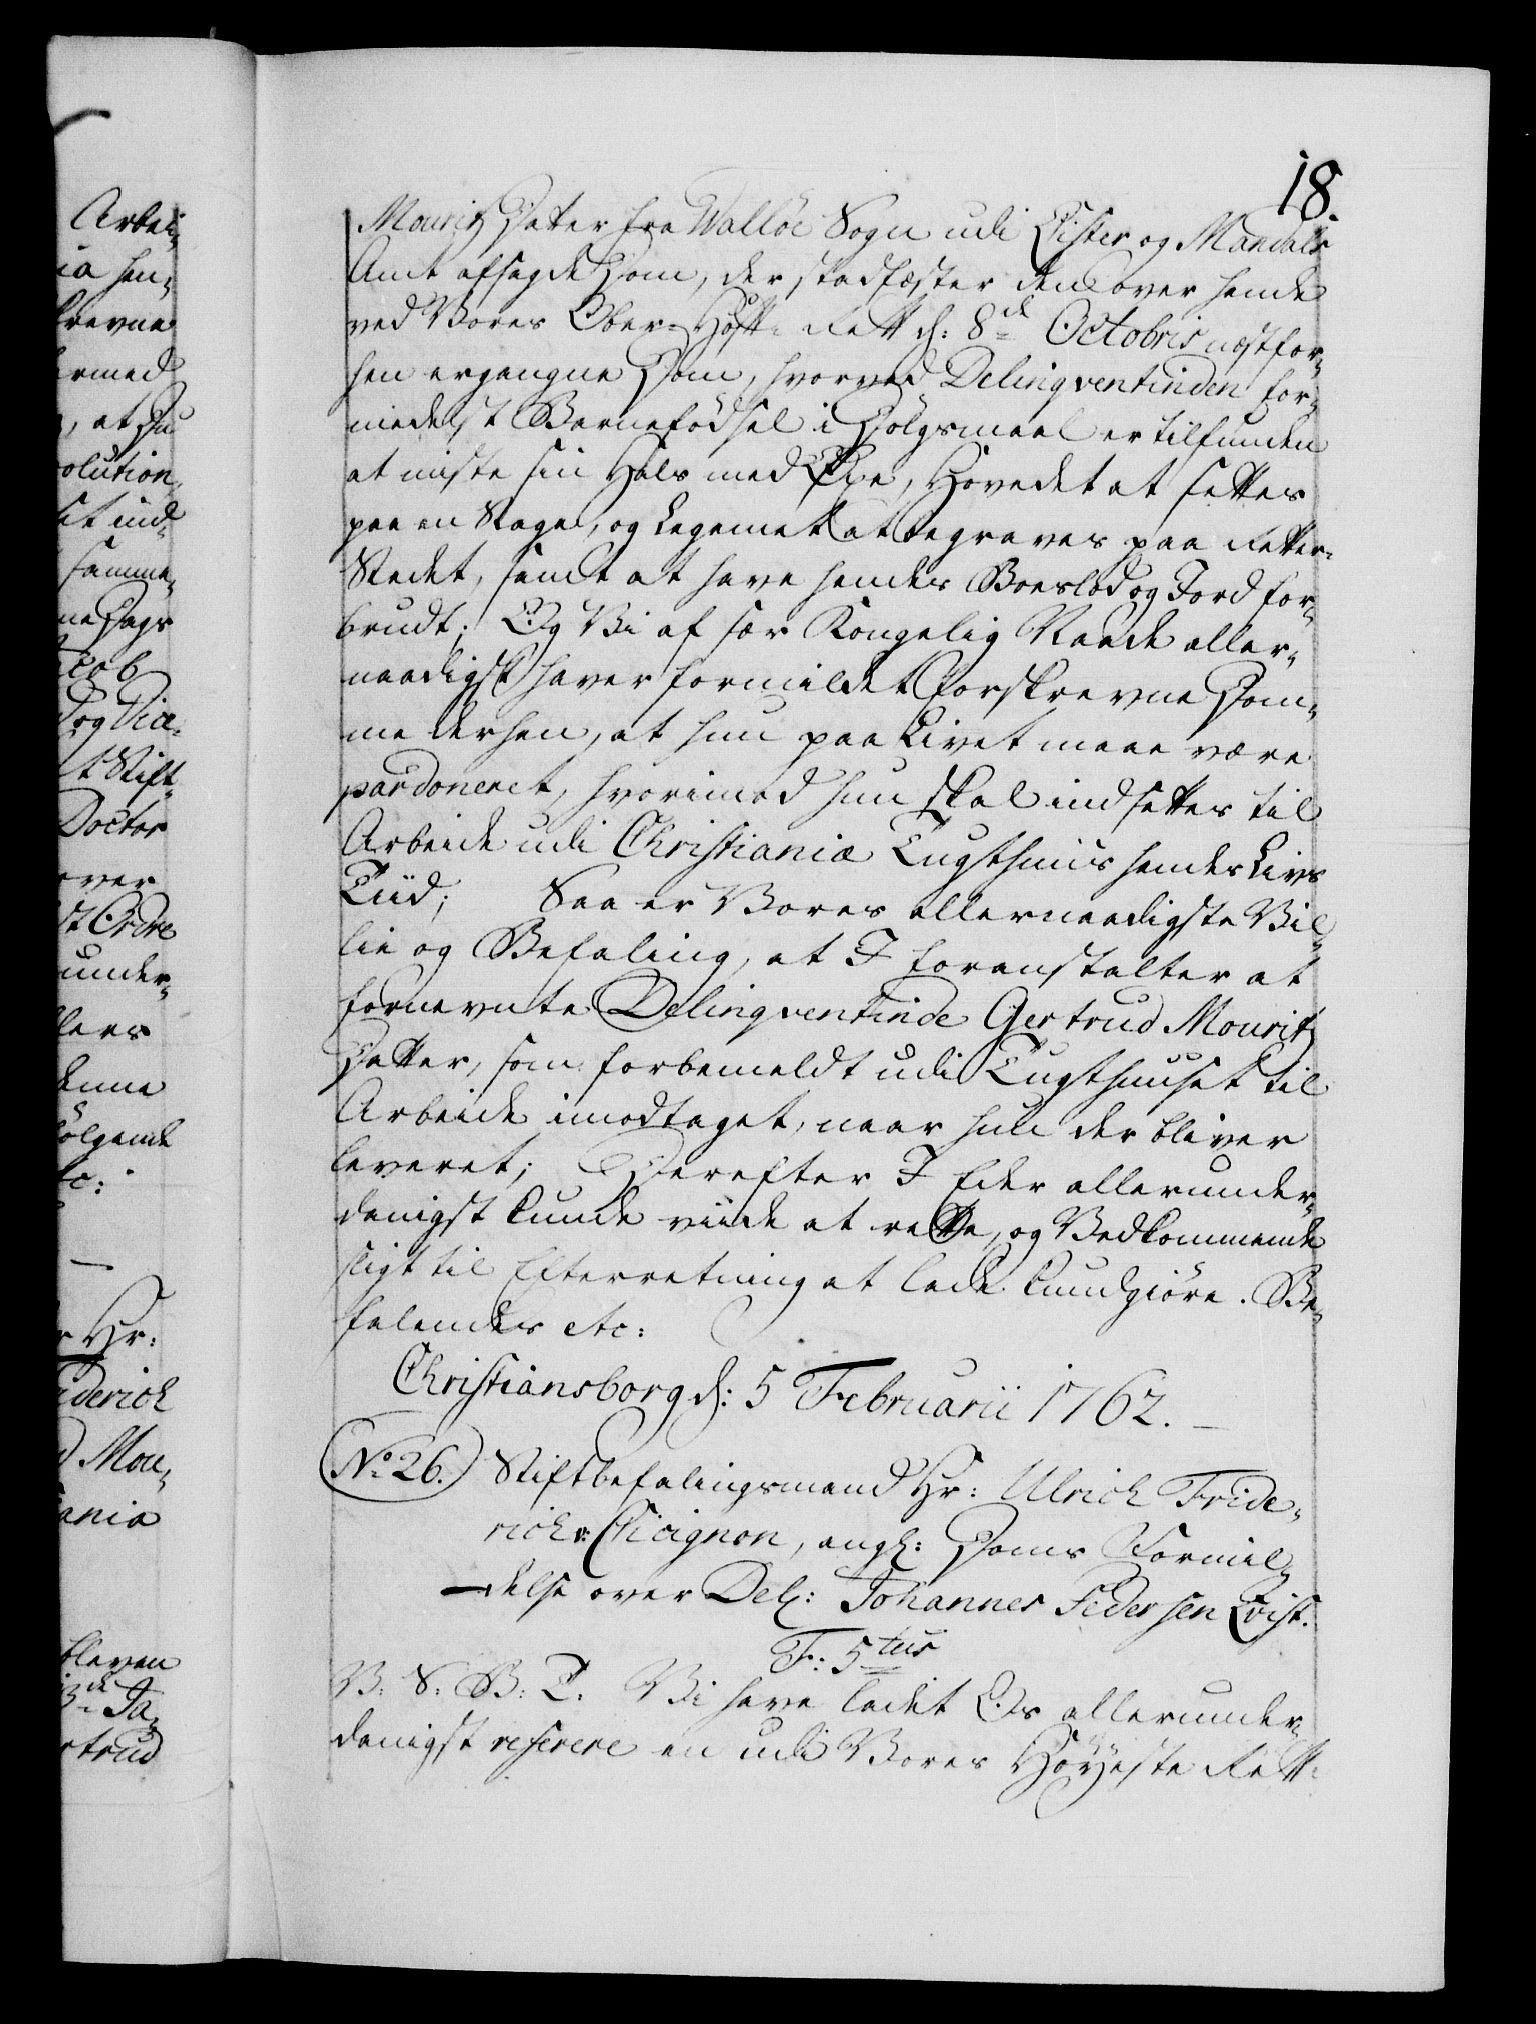 18.
Mouritz Datter fra Walløe Sogn udi Lister og Mandals
Amt afsagde Dom, der stadfæster den over hende
ved Vores Ober-Hoff-Rett d: 8de Octobris næstfor-
hen ergangne Dom, hvorved Delinqventinden for-
medelst Barnefødsel i Dølgsmaal er tilfunden
at miste sin Hals med Øxe, Hovedet at settes
paa en Stage, og Legemet at begraves paa Retter-
Stedet, samt at have hendes Boeslod og Jord for-
brudt; Og Vi af sær Kongelig Naade aller-
naadigst haver formildet forskrevne Dom-
me derhen, at hun paa Livet maae være
pardoneret, hvorimod hun skal indsettes til
Arbeide udi Christianiæ Tugthuus hendes Livs
Tiid; Saa er Vores allernaadigste Vil-
lie og Befaling, at I foranstalter at
fornevnte Delinqventinde Gertrud Mouritz
Datter, som forbemeldt udi Tugthuuset til
Arbeide imodtaget, naar hun der bliver
leveret; Derefter I Eder allerunder-
danigst kunde viide at rette, og Vedkommende
sligt til Efterretning at lade kundgiøre. Be-
falendes etc:
Christiansborg d: 5 Februarii 1762.
No. 26. Stiftbefalingsmand Hr: Ulrich Fride-
rich v: Cicignon, angl: Doms Formil-
delse over Del: Johannes Pedersen Qvist.
F: 5tus
V: S: G: T. Vi have ladet Os allerunder-
danigst referere en udi Vores Høyeste Rett
Arbei-
ia hen-
krevne
ermed
, at Du
olution,
sit ind-
samme-
ne Dags
acob
og Vice-
t Stift-
Doctor
over
st Ordre
under-
llers
denne
følgende
tc:
r Hr:
iderich
d Mou-
ania
bleven
3de Ja-
rtrud